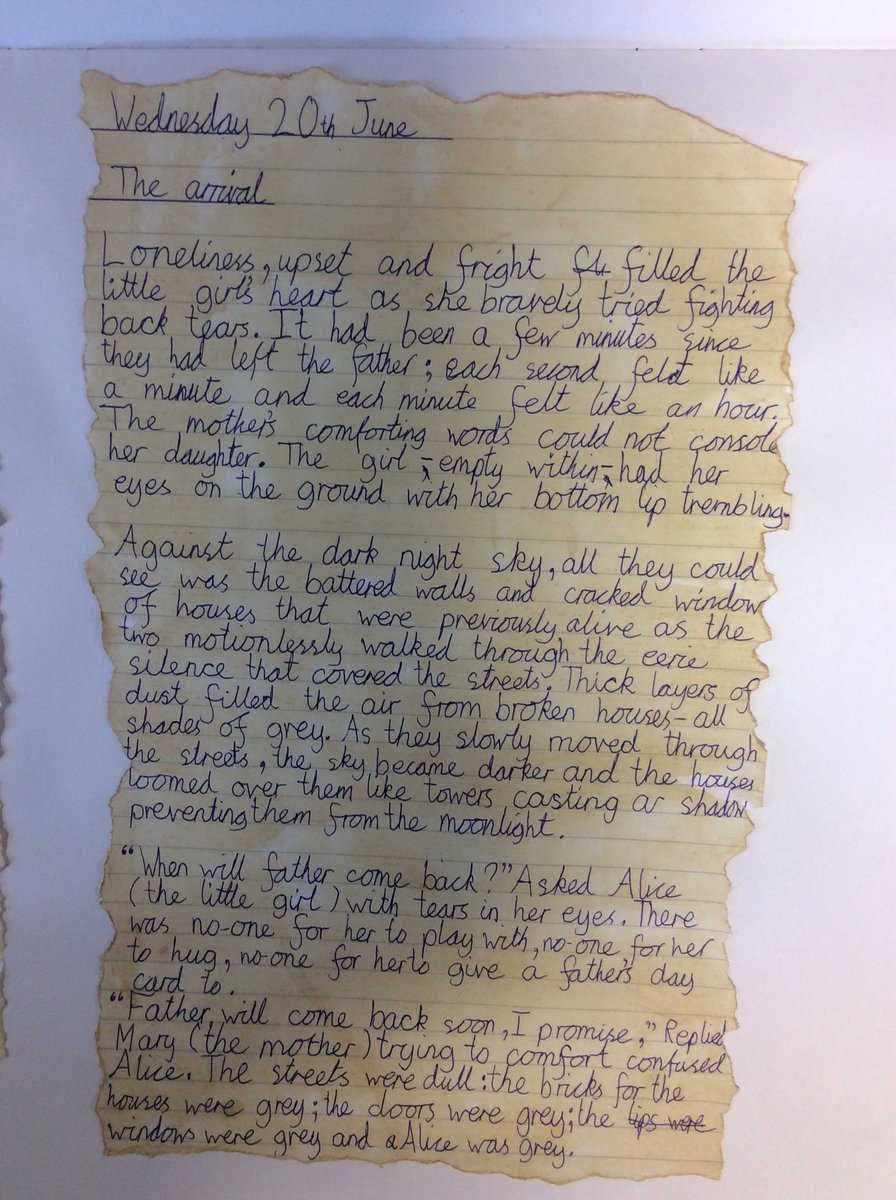 Wednesday 20th June
The arrival
Loneliness, upset and fright filled the
little girl's heart as she bravely tried fighting
back tears. It had been a few minutes since
they had left the father; each second felt like
a minute and each minute felt like an hour.
The mother's comforting words could not console
her daughter. The girl, empty within, had her
eyes on the ground with her bottom lip trembling.
Against the dark night sky, all they could
see was the battered walls and cracked window
of houses that were previously alive as the
two motionlessly walked through the eerie
silence that covered the streets. Thick layers of
dust filled the air from broken houses - all
shades of grey. As they slowly moved through
the streets, the sky became darker and the houses
loomed over them like towers casting a shadow
preventing them from the moonlight.
"When will father come back?" Asked Alice
(the little girl) with tears in her eyes. There
was no-one for her to play with, no-one for her
to hug, no-one for her to give a father's day
card to.
"Father will come back soon, I promise," Replied
Mary (the mother) trying to comfort confused
Alice. The streets were dull: the bricks for the
houses were grey; the doors were grey; the lips were
windows were grey and Alice was grey.